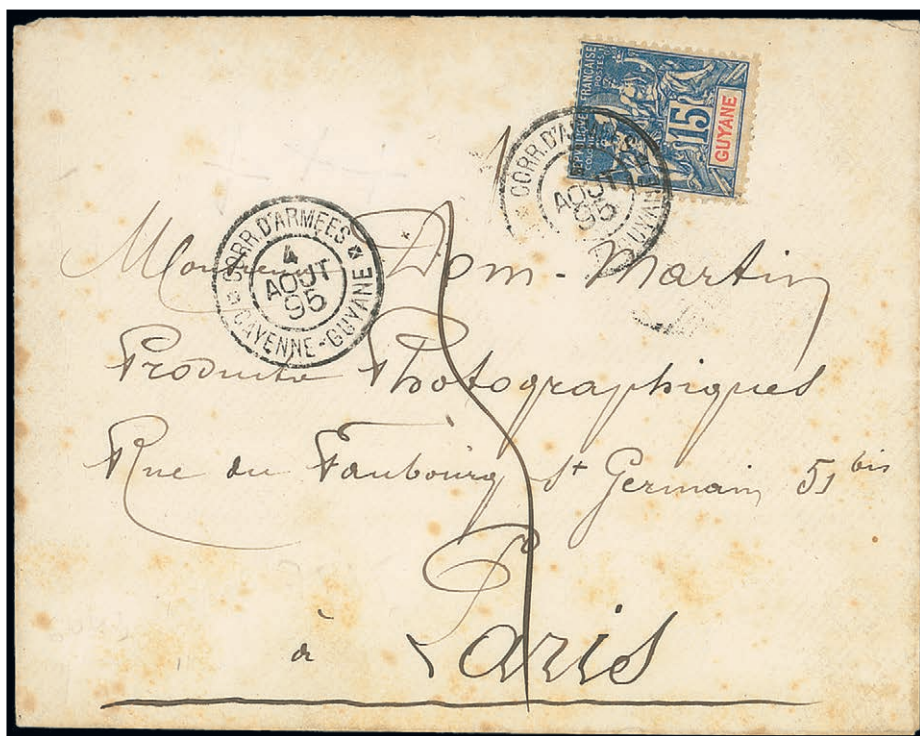 RÉPUBLIQUE FRANÇAISE
POSTES
COLONIES
15
GUYANE
CORR. D'ARMÉES
AOUT
95
CORR. D'ARMEES
4
AOUT
95
CAYENNE-GUYANE
Monsieur Dom-Martin
Produits Photographiques
Rue du Faubourg St Germain 51 bis
à Paris